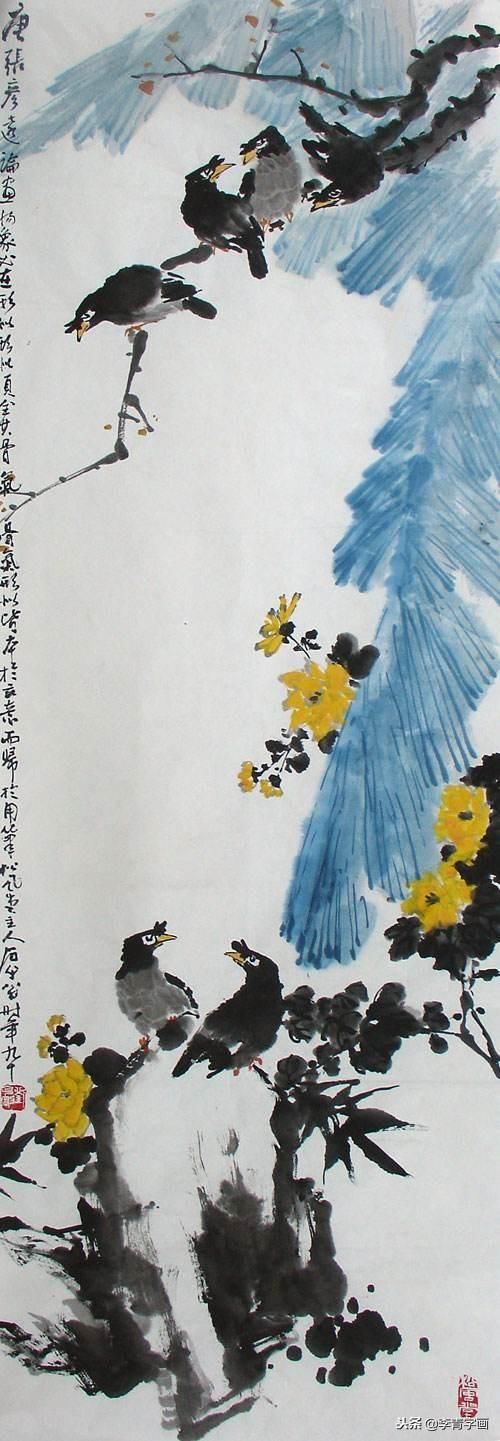 唐張彥遠論畫物象必在形似形似須全其骨氣骨氣形似皆本於立意而歸於用筆松風堂主人時年九十
头条 @李菁学画